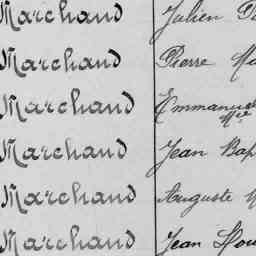 Marchand Julien
Marchand Pierre
Marchand Emmanuel
Mie
Marchand Jean Bap
Marchand Auguste
Marchand Jean Lou